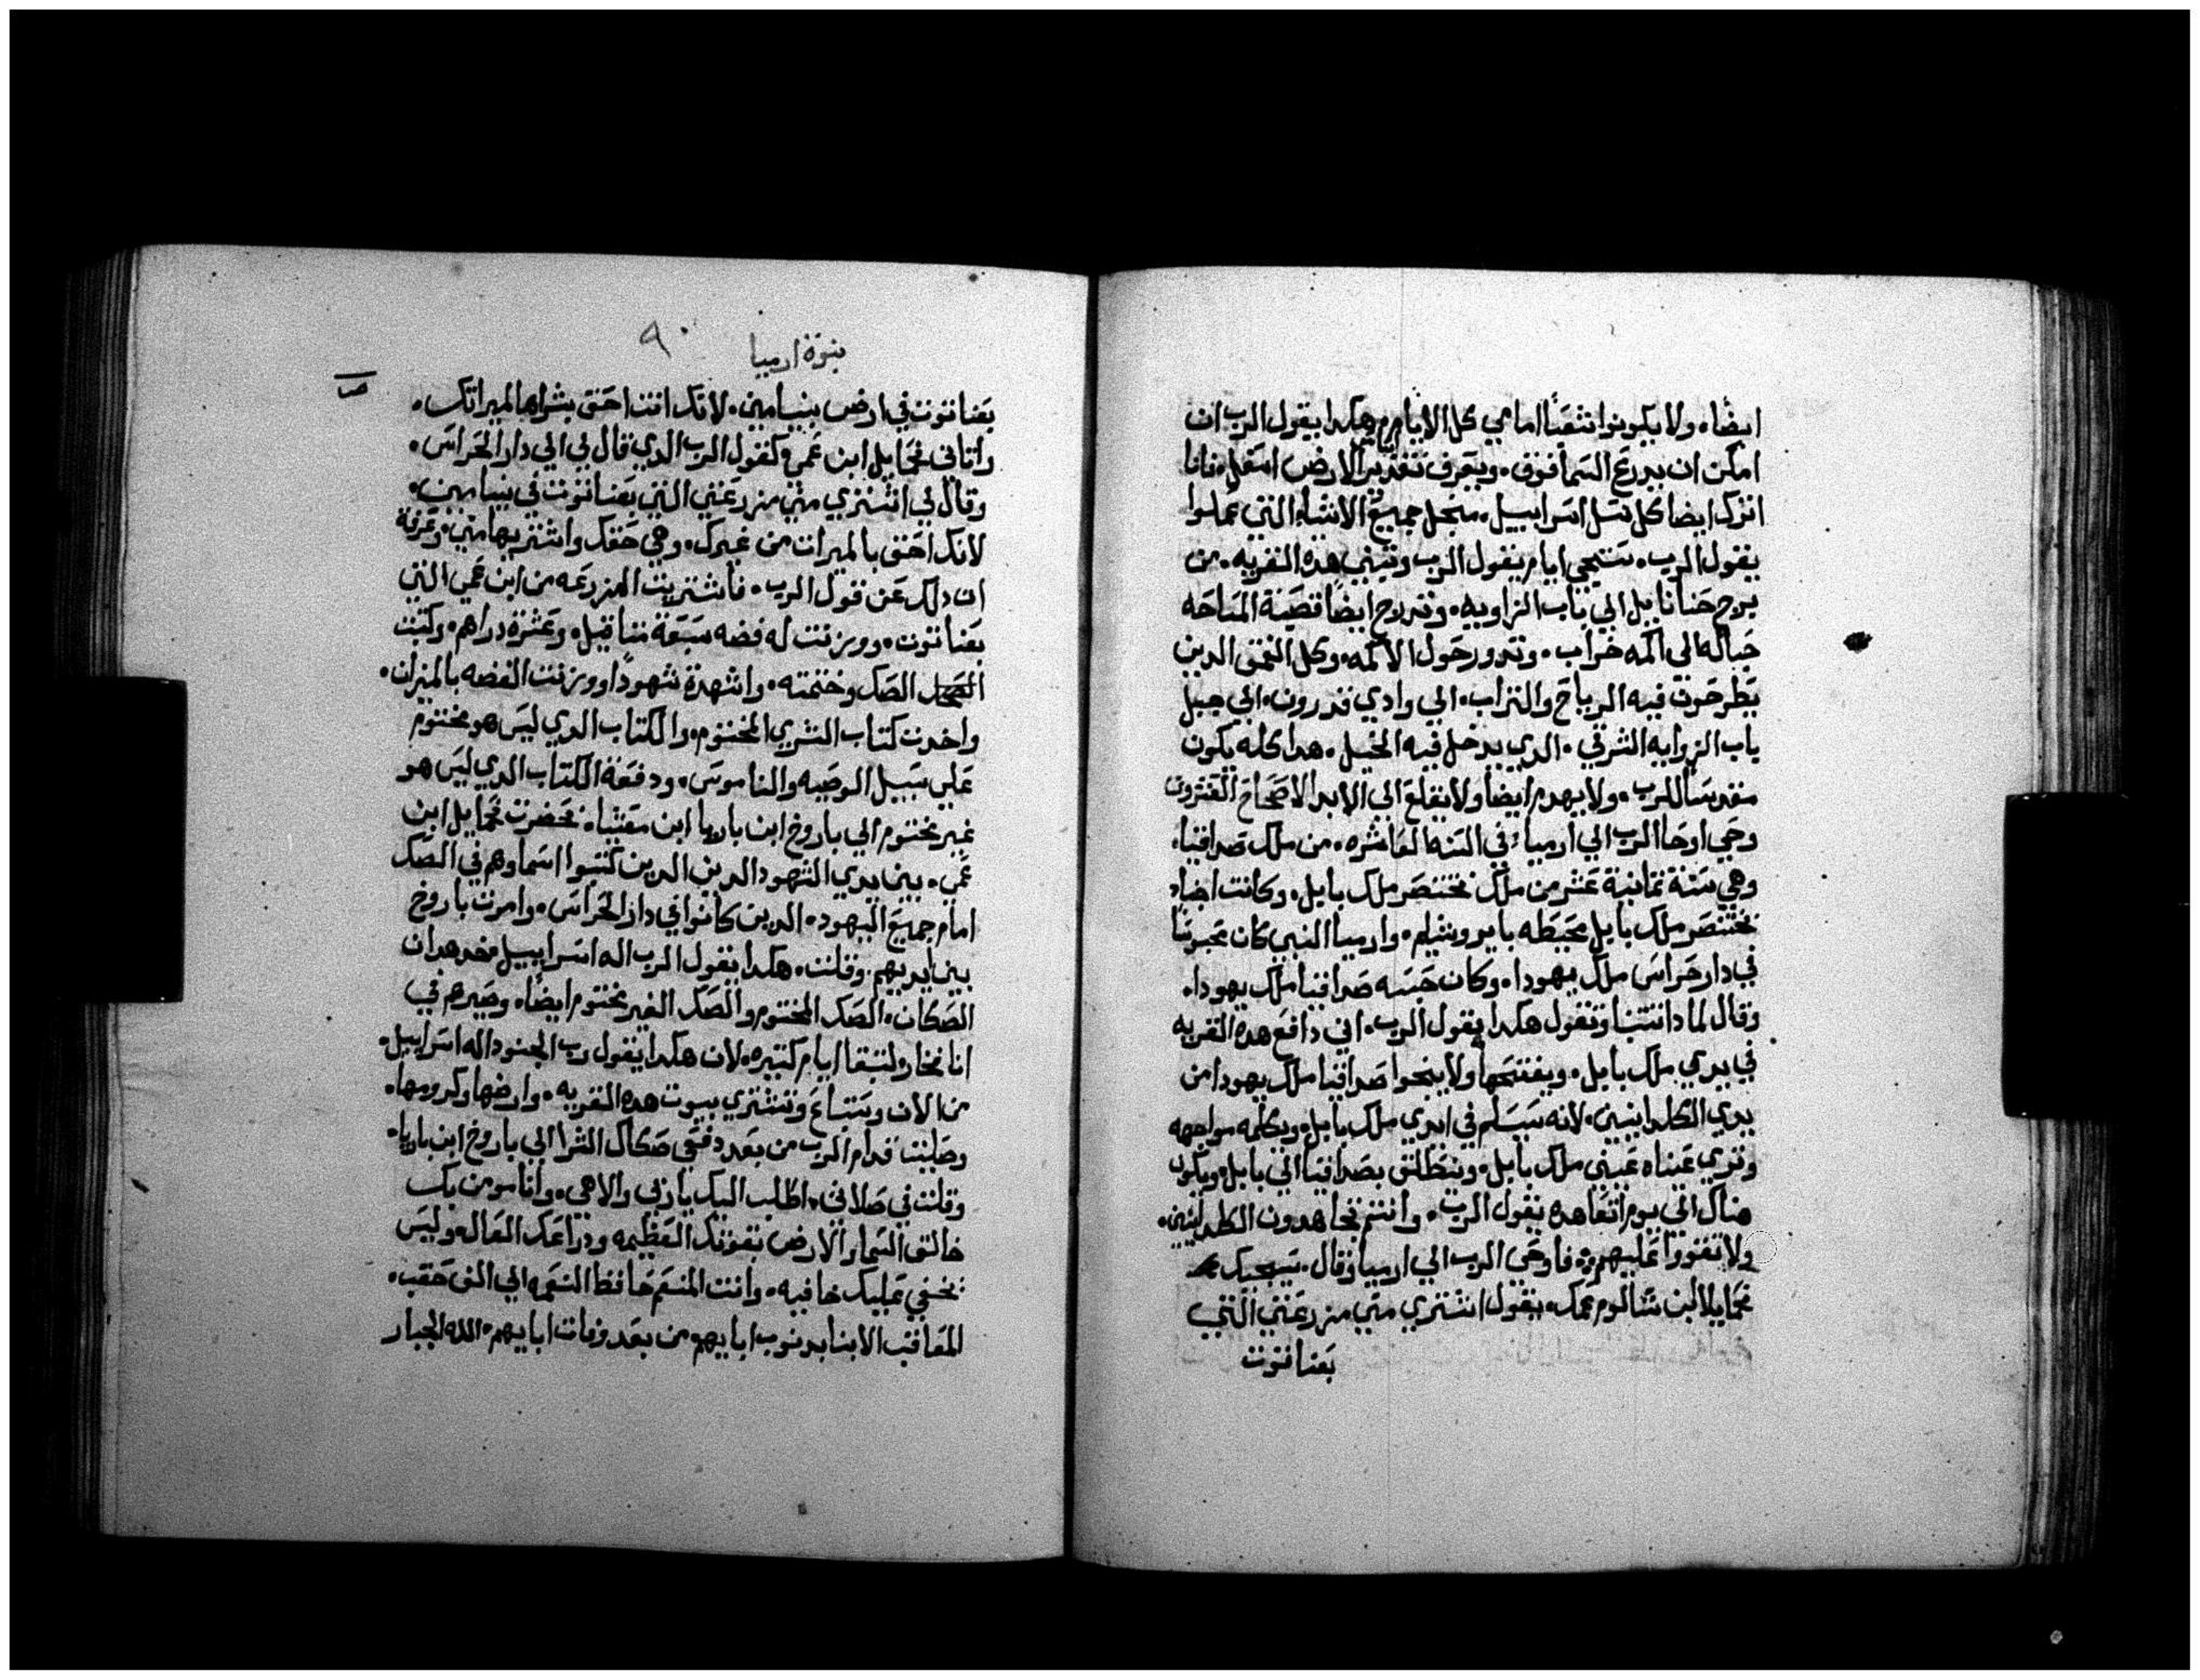 ايضًا. ولا يكونوا شقبًا امامي كل الايام هكدا يقول الرب ان
امكن ان يدرع السما فوق. ويعرف تقدير الارض اسفل. فانا
اترك ايضا كل نسل اسراييل. من اجل جميع الاشيا التي عملوا
يقول الرب. ستجي ايام يقول الرب وتبني هده القريه. من
برج حنانايل الي باب الزاويه. وتروح ايضًا قصبة المساحه
حباله الي اكمه خراب. وتدور حول الاكمه. وكل العمق الدين
يطرحون فيه الرياح والتراب. الي وادي قدرون. الي جبل
باب الزوايه الشرقي. الدي يدخل فيه الخيل. هدا كله يكون
مقدسًا للرب. ولا يهدم ايضًا ولا يقلع الي الابد الاصحاح العشرون
وحي اوحا الرب الي ارميا. في السنه العاشره. من ملك صداقيا.
وهي سنة تمانية عشر من ملك بختنصر ملك بابل. وكانت اجناد
بختنصر ملك بابل محيطه بايروشليم. وارميا النبي كان محبوسًا
في دار حراس ملك يهودا. وكان حبسه صداقيا ملك يهودا.
وقال لمادا تتنبا وتقول هكدا يقول الرب. اني دافع هده القريه
في يدي ملك بابل. ويفتتحها ولا ينجوا صداقيا ملك يهودا من
يدي الكلدانيين. لانه سيسلم في ايدي ملك بابل. ويكلمه مواجهه
وتري عيناه عيني ملك بابل. وينطلق بصداقيا الي بابل. ويكون
هناك الي يوم اتعاهده يقول الرب. وانتم تجاهدون الكلدانيين.
ولا تقووا عليهم. فاوحي الرب الي ارميا وقال. سيجيك
نحمايل ابن شالوم عمك. يقول اشتري مني مزرعتي التي
بعناتوت
نبوة ارميا
٩٠
بعناتوت في ارض بنيامين. لانك انت احق بشراها لميراتك.
واتاني نحمايل ابن عمي كقول الرب الدي قال لي الي دار الحراس.
وقال لي اشتري مني مزرعتي التي بعناتوت في بنيامين.
لانك احق بالميرات من غيرك. وهي حقك واشتريها مني. وعرفة
ان دلك عن قول الرب. فاشتريت المزرعه من ابن عمي التي
بعناتوت. ووزنت له فضه سبعة متاقيل. وعشرة دراهم. وكتبت
الصك وختمته. واشهدة شهودًا ووزنت الفضه بالميزان.
واخدت كتاب الشري المختوم. والكتاب الدي ليس هو مختوم
علي سبيل الوصيه والناموس. ودفعة الكتاب الدي ليس هو
غير مختوم الي باروخ ابن باريا ابن معنيا. نحضرت نحمايل ابن
عمي. بين يدي الشهود الدين الدين كتبوا اسماوهم في الصك
امام جميع اليهود. الدين كانوا في دار الحراس. وامرت باروخ
بين ايديهم. وقلت. هكدا يقول الرب اله اسراييل خد هدان
الصكان. الصك المختوم والصك الغير مختوم ايضًا. وصيرهم في
انا نخار لتبقا ايام كتيره. لان هكدا يقول رب الجنود اله اسراييل.
من الان ويتباع وتشتري بيوت هده القريه. وارضها وكرومها.
وصليت قدام الرب من بعد دفعي صكاك الشرا الي باروخ ابن باريا.
وقلت في صلاتي. اطلب اليك يا ربي والاهي. وانا مومن بك
خالق السما والارض بقوتك العظيمه ودراعك العاله وليس
تخفي عليك خافيه. وانت المنعم حافظ النعمه الي الف حقب.
المعاقب الابنا بدنوب ابايهم من بعد وفات ابايهم. الله الجبار